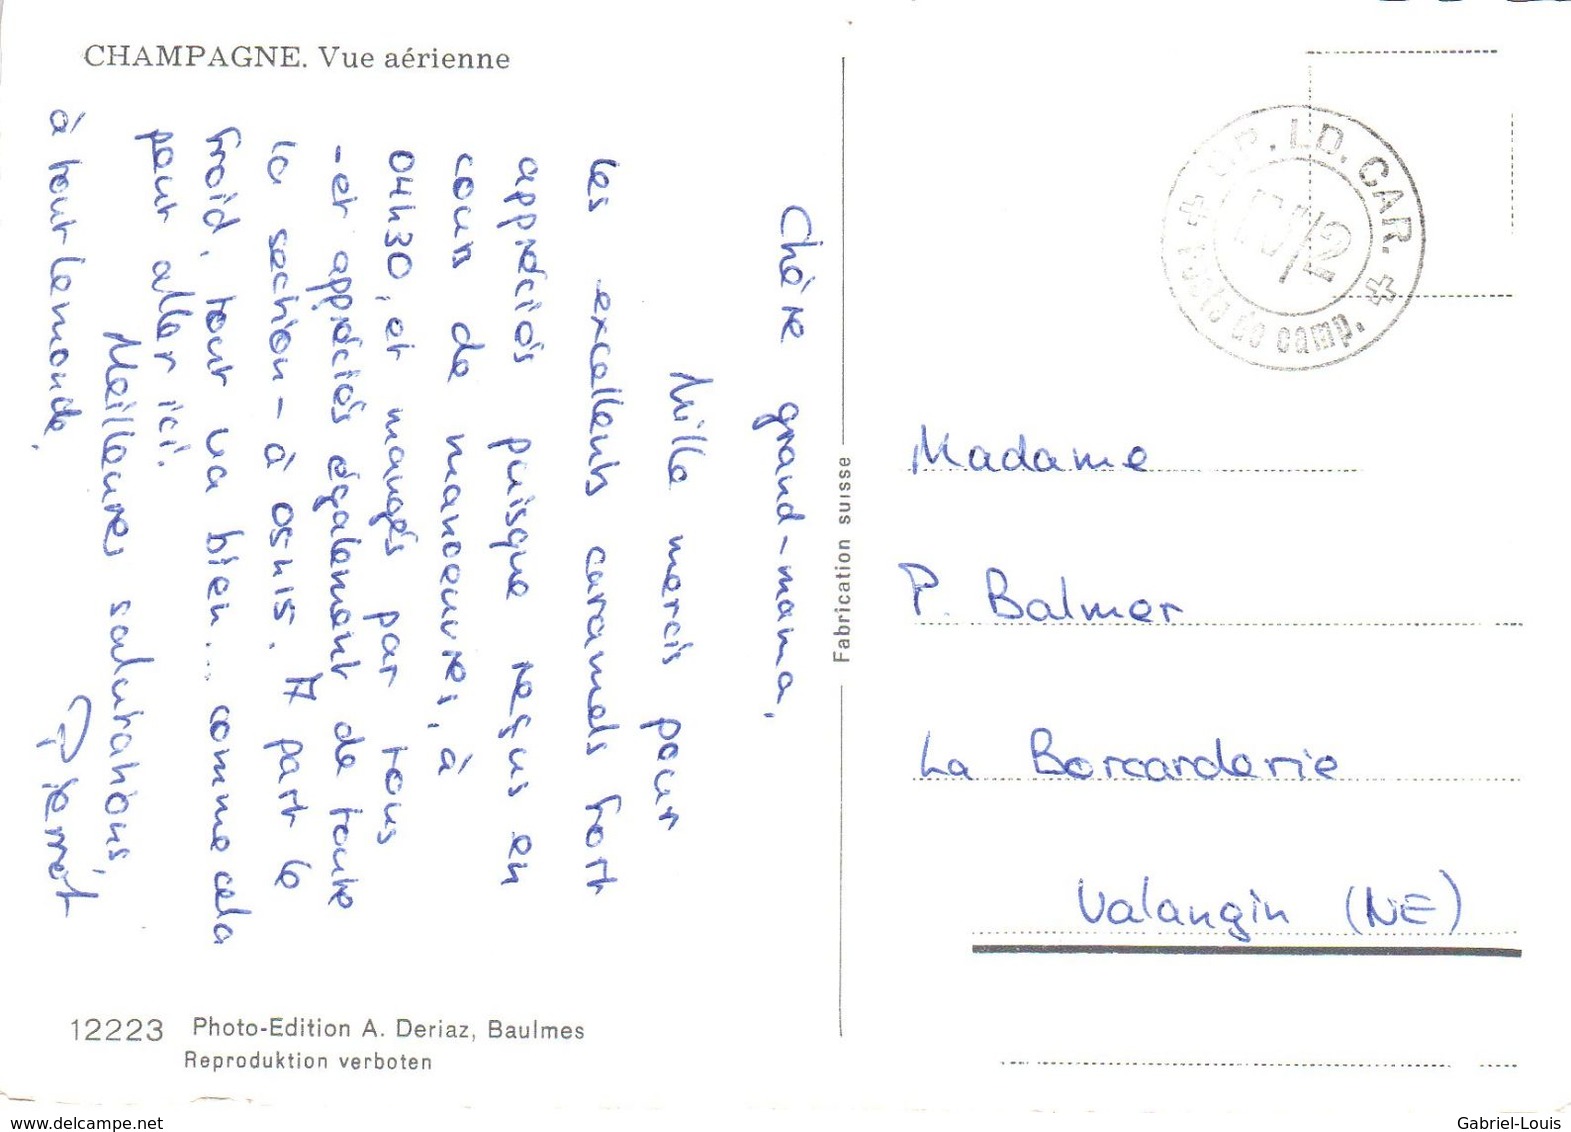 CHAMPAGNE. Vue aérienne
Chère grand-mama,
Mille mercis pour
les excellents caramels fort
appréciés puisque reçus en
cours de manoeuvres, à
04h30, et mangés par tous
- et appréciés également de toute
la section - à 05h15. A part le
froid, tout va bien... comme cela
peut aller ici.
Meilleures salutations,
à tout le monde.
Pierrot
12223 Photo-Edition A. Deriaz, Baulmes
Reproduktion verboten
Fabrication suisse
LD. CAR.
IV/2
Poste de camp.
Madame
P. Balmer
La Borcarderie
Valangin (NE)
www.delcampe.net
Gabriel-Louis